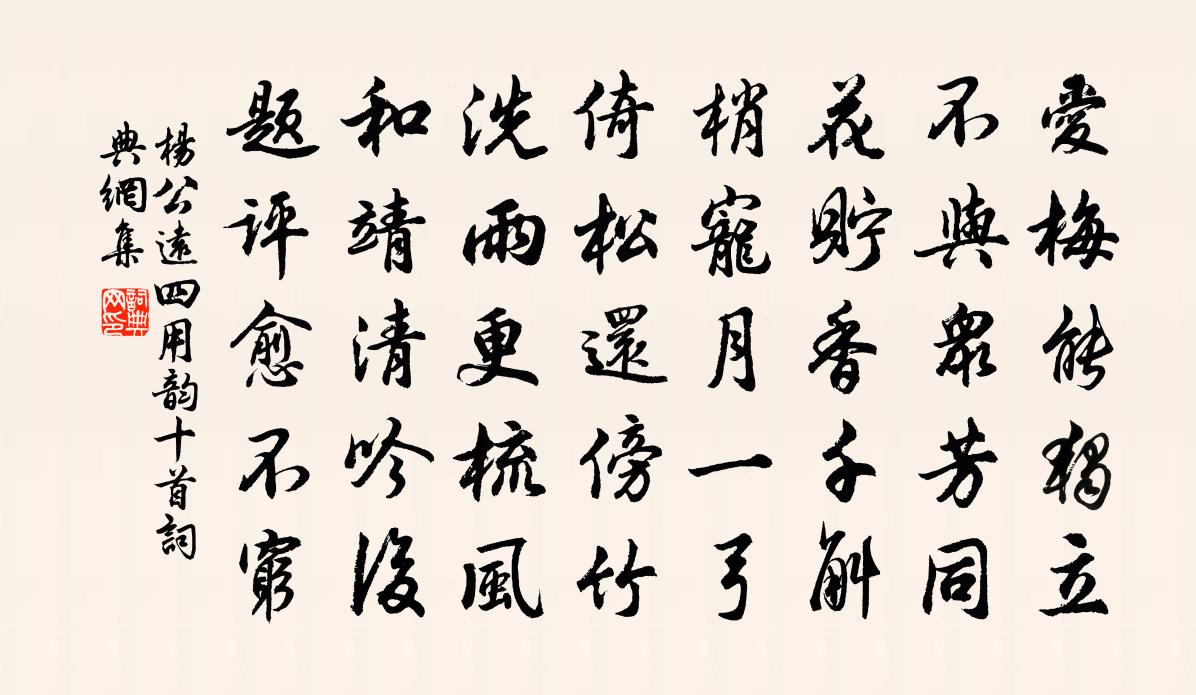 愛梅能獨立
不與眾芳同
花貯香千斛
梢寵月一弓
倚松還傍竹
洗雨更梳風
和靖清吟後
題評愈不窮
楊公遠四用韵十首詞
典網集
詞典网印